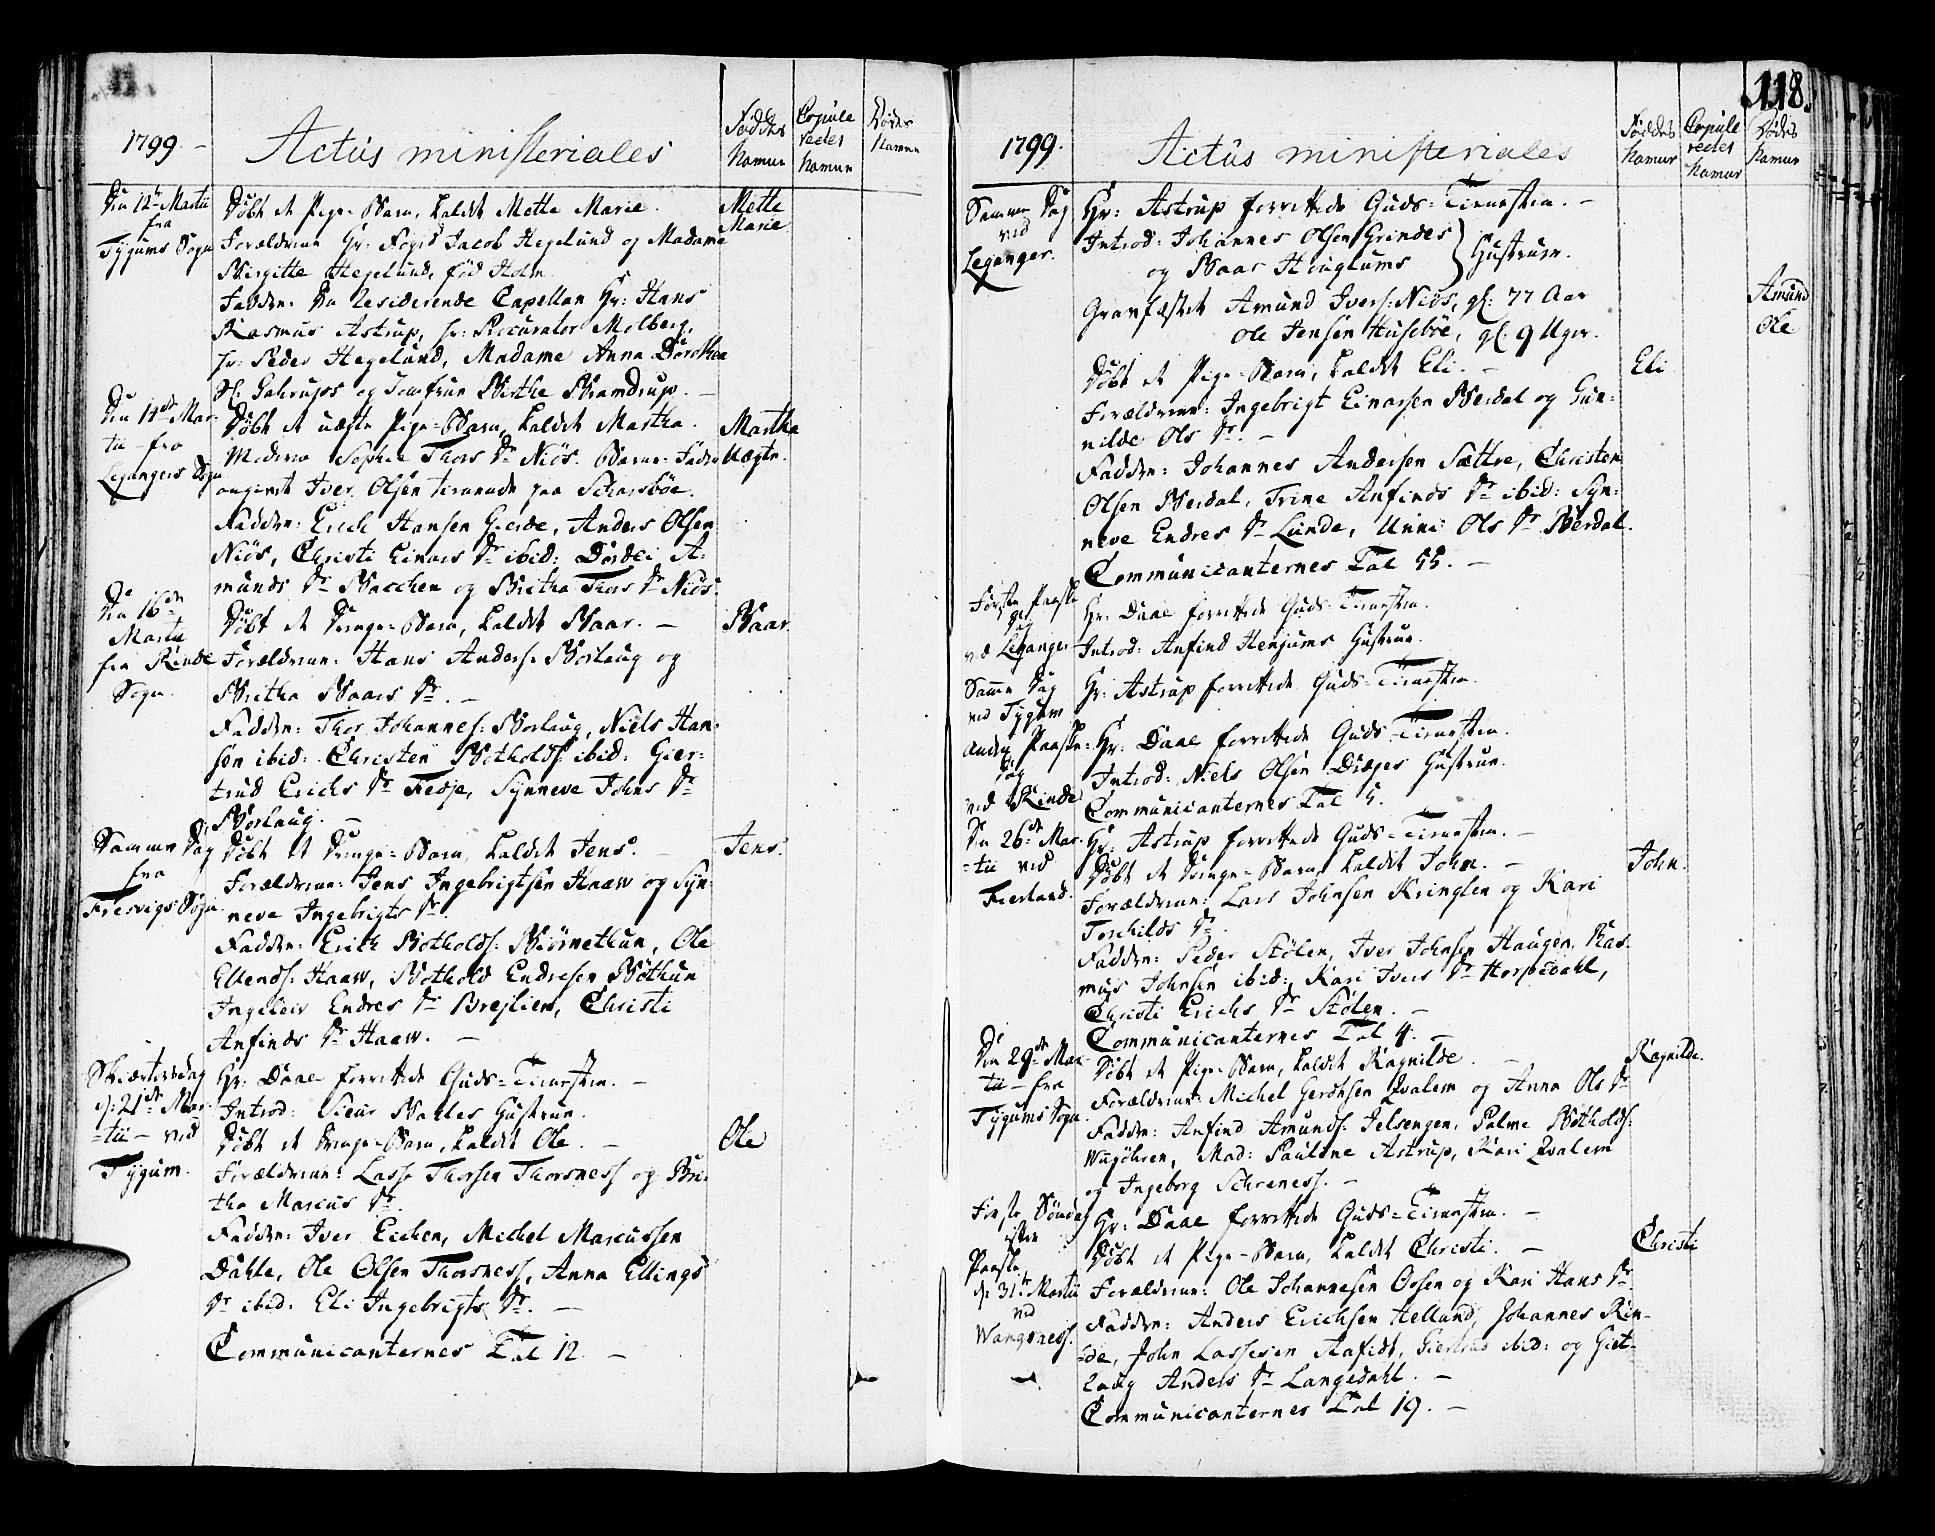 1799.
Actus ministeriales
Føddes Navne
Copuleredes Navne
Dødes Navne
Den 12te Martii fra Tygums Sogn
Døbt et Pige-Barn, kaldet Mette Marie.
Mette Marie
Forældrene Hr: Fogd Jacob Hegelund og Madame
Birgitte Hegelund, fød Holm.
Faddere: Den residerende Capellan Hr: Hans
Rasmus Astrup, hr: Procurator Molberg,
hr: Peder Hegelund, Madame Anna Dorothea
Sl. og Jomfrue Birthe Bramdrup.
Den 14de Martii fra Legangers Sogn
Døbt et uægte Pige-Barn, kaldet Martha.
Martha Uægte.
Moderen Sophie Thors Dr Niös. Barne-Fader
angivet Iver Olsen tienende paa
Faddere: Erich Hansen Gierde, Anders Olsen
Niös, Christi Einars Dr ibid: Dordei A-
munds Dr Bacchen og Britha Thors Dr Niös.
Den 16de Martii fra Rinde Sogn.
Døbt et Drenge-Barn, kaldet Baar. —
Baar.
Forældrene: Hans Anders: Borlaug og
Britha Baars Dr. —
Faddere: Thor Johannes: Borlaug, Niels Han-
sen ibid: Christen Botholds: ibid: Gier-
trud Erichs Dr Fedje, Synneve Johns Dr
Borlaug. —
Samme Dag fra Fresvigs Sogn.
Døbt et Drenge-Barn, kaldet Jens. —
Jens.
Forældrene: Jens Ingebrigtsen Haaw og Syn-
neve Ingebrigts Dr.
Faddere: Erich Botholds: Biörnethun, Ole
Ellends: Haaw, Bothold Endresen Böthun
Ingeleiv Endres Dr Brejlien, Christi
Anfinds Dr Haaw. —
Skiærtorsdag d: 21de Martii — ved Tygum.
Hr: Daae forrettede Guds-Tienesten. —
Introd: Sieur Balles Hustrue.
Døbt et Drenge-Barn, kaldet Ole. —
Ole
Forældrene: Lasse Thorsen Thorsness og Bri-
tha Marcus Dr.
Faddere: Iver Eichen, Michel Marcussen
Dahle, Ole Olsen Thorsness, Anna Ellings
Dr ibid: Eli Ingebrigts Dr. —
Communicanternes Tal 12. —
118.
1799.
Actus ministeriales
Føddes Navne
Copuleredes Navne
Dødes Navne
Samme Dag ved Leganger.
Hr: Astrup forrettede Guds-Tienesten. —
Introd: Johannes Olsen Grindes
og Baar Henjums } Hustruer.
Gravfæstet Amund Ivers: Niös, gl: 77 Aar
Amund
Ole Jensen Huseböe, gl. 9 Uger.
Ole
Døbt et Pige-Barn, kaldet Eli. —
Eli
Forældrene: Ingebrigt Einarsen Berdal og Gun-
nilde Ols Dr. —
Faddere: Johannes Andersen Sættre, Christen
Olsen Berdal, Trine Anfinds Dr ibid: Syn-
neve Endres Dr Lunde, Unni Ols Dr Berdal.
Communicanternes Tal 55. —
Første Paaske Dag ved Leganger
Hr: Daae forrettede Guds-Tienesten.
Introd: Anfind Henjums Hustrue.
Samme Dag ved Tygum
Hr: Astrup forrettede Guds-Tienesten.
Anden Paaske-Dag ved Rinde
Hr: Daae forrettede Guds-Tienesten.
Introd: Niels Olsen Dræges Hustrue.
Communicanternes Tal 5.
Den 26de Martii ved Fierland.
Hr: Astrup forrettede Guds-Tienesten. —
Døbt et Drenge-Barn, kaldet John. —
John.
Forældrene: Lars Johnsen Kringlen og Kari
Torchilds Dr.
Faddere: Peder Stölen, Iver Johnsen Haugen, Ras-
mus Johnsen ibid: Kari Ivers Dr Horpedahl,
Christi Erichs Dr Stölen. —
Communicanternes Tal 4. —
Den 29de Martii — fra Tygums Sogn.
Døbt et Pige-Barn, kaldet Ragnilde. —
Ragnilde.
Forældrene: Michel Gerdhsen Qvalem og Anna Ols Dr
Faddere: Anfind Amunds: Jelsengen, Palme Botholds:
Mad: Pauline Astrup, Kari Qvalem
og Ingeborg —
Første Søndag efter Paaske d: 31te Martii ved Wangsness.
Hr: Daae forrettede Guds-Tienesten. —
Døbt et Pige-Barn, kaldet Christi. —
Christi
Forældrene: Ole Johannesen Oosen og Kari Hans Dr
Faddere: Anders Erichsen Helland, Johannes Rin-
de, John Lassesen Aafedt, Giertrud ibid: og Giet-
laug Anders Dr Langedahl. —
Communicanternes Tal 19. —